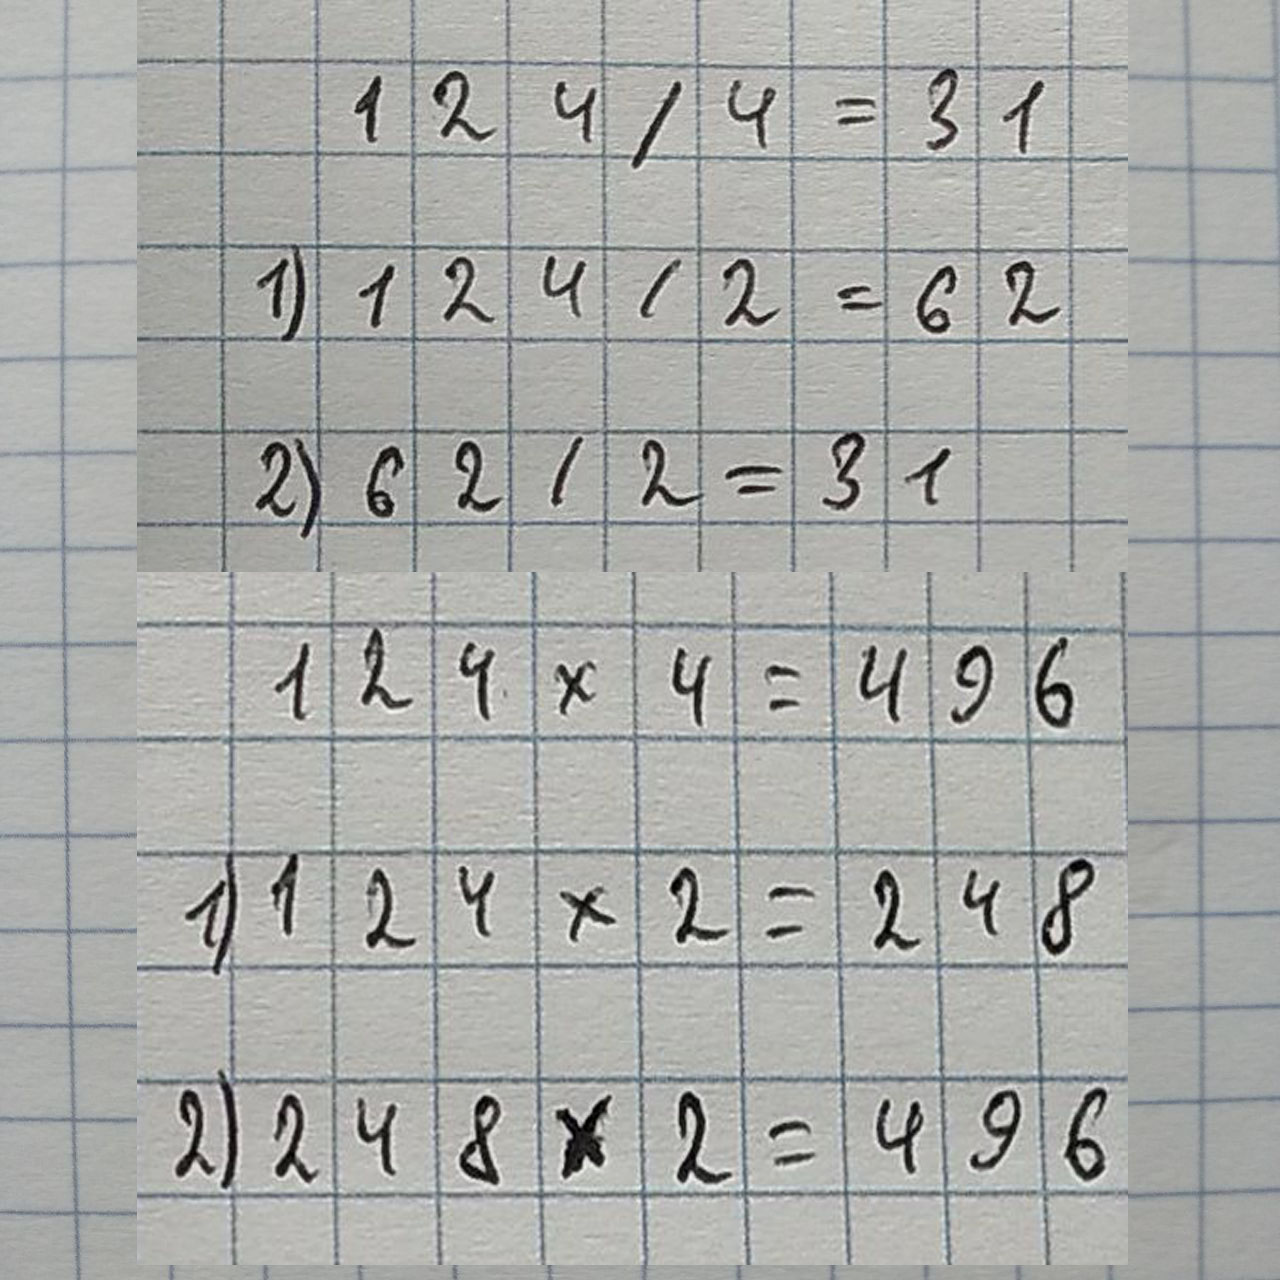 124/4=31
1) 124/2=62
2) 62/2=31
124x4=496
1) 124x2=248
2) 248x2=496